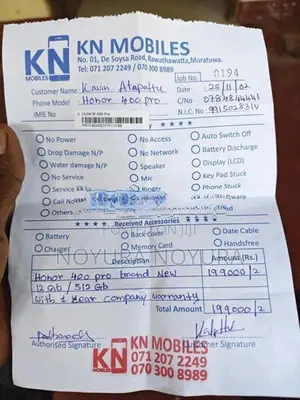 KN KN MOBILES
MOBILES No. 01, De Soysa Road, Rawathawatta, Moratuwa.
Tel: 071 207 2249 / 070 300 8989
Job No. 0194
Customer Name : Kavin Atapattu Date : 25/11/02
Phone Model : Honor 400 pro C/No
IMIE No : N.I.C. No
No Power No Access Auto Switch Off
Drop Damage N/P No Network Battery Discharge
Water damage N/P Speaker Display (LCD)
No Service Mic Key Pad Stuck
Service Ringer Phone Stuck
Call No
Others
Received Accessories
Battery Back Cover Date Cable
Charger Memory Card Handsfree
Description Amount (Rs.)
Honor 400 pro brand New 199000/=
12 Gb / 512 Gb
With 1 Year company warranty
Total Amount 199000/=
Authorised Signature Customer Signature
KN KN MOBILES
MOBILES 071 207 2249
070 300 8989